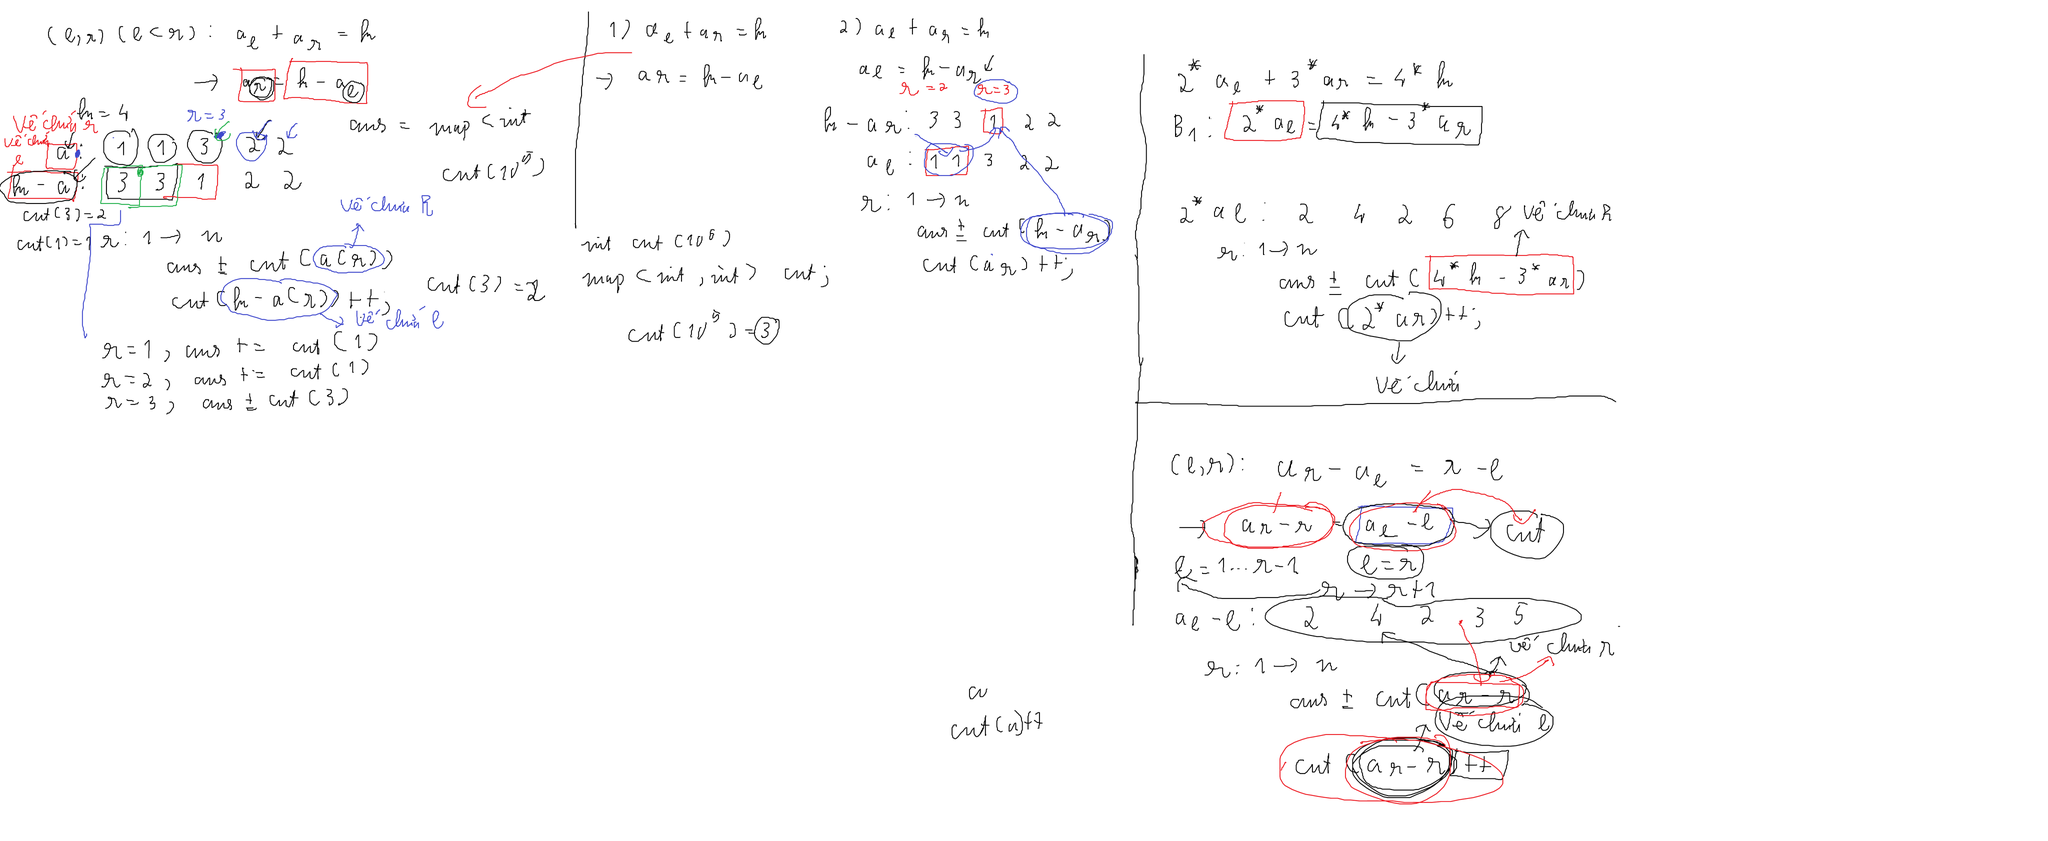 (l,r) (l<r): a_l + a_r = k
→ a_r = k - a_l
k = 4
Vế chứa r
r=3
Vế chứa l
a: 1 1 3 2 2
k - a: 3 3 1 2 2
cnt(3)=2
cnt(1)=1
r: 1 → n
vế chứa R
ans += cnt(a(r))
cnt(k-a(r))++;
vế chứa l
r=1, ans += cnt(1)
r=2, ans += cnt(1)
r=3, ans += cnt(3)
ans = map<int
cnt(10^5)
cnt(3)=2
1) a_l + a_r = k
→ a_r = k - a_l
int cnt(10^6)
map<int, int> cnt;
cnt(10^5)=3
2) a_l + a_r = k
a_l = k - a_r
r=2 r=3
k - a_r: 3 3 1 2 2
a_l: 1 1 3 2 2
r: 1 → n
ans += cnt(k-a_r)
cnt(a_r)++;
a
cnt(a)++
2* a_l + 3* a_r = 4* k
B1: 2* a_l = 4* k - 3* a_r
2* a_l: 2 4 2 6 8 vế chứa R
r: 1 → n
ans += cnt(4* k - 3* a_r)
cnt(2* a_r)++;
vế chứa
(l,r): a_r - a_l = r - l
→ a_r - r = a_l - l → cnt
l = 1...r-1 l=r
r → r+1
a_l - l: 2 4 2 3 5
vế chứa r
r: 1 → n
ans += cnt(a_r - r)
vế chứa l
cnt(a_r - r)++